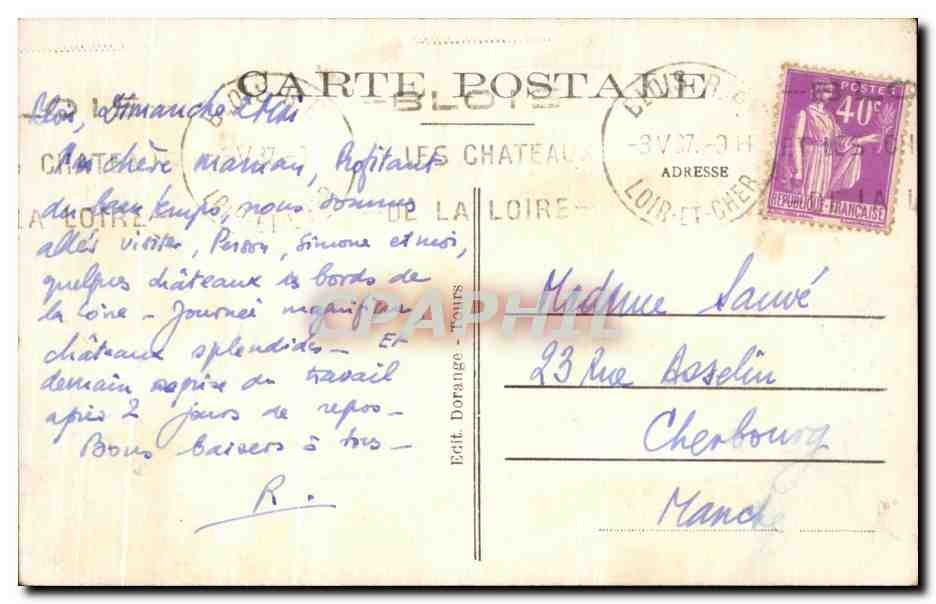 CARTE POSTALE
BLOIS
LES CHATEAUX
DE LA LOIRE
BLOIS R.P.
LOIR-ET-CHER
POSTES
40c
REPUBLIQUE FRANÇAISE
ADRESSE
Blois, Dimanche
Ma chère maman, Profitant
du beau temps, nous sommes
allés visiter, Simone et moi,
quelques châteaux des bords de
la Loire - Journée magnifique,
châteaux splendides - Et
demain reprise du travail
après 2 jours de repos -
Bons baisers à tous -
R.
Edit. Dorange - Tours
Madame Sauvé
23 Rue Asselin
Cherbourg
Manche
CPAPHIL